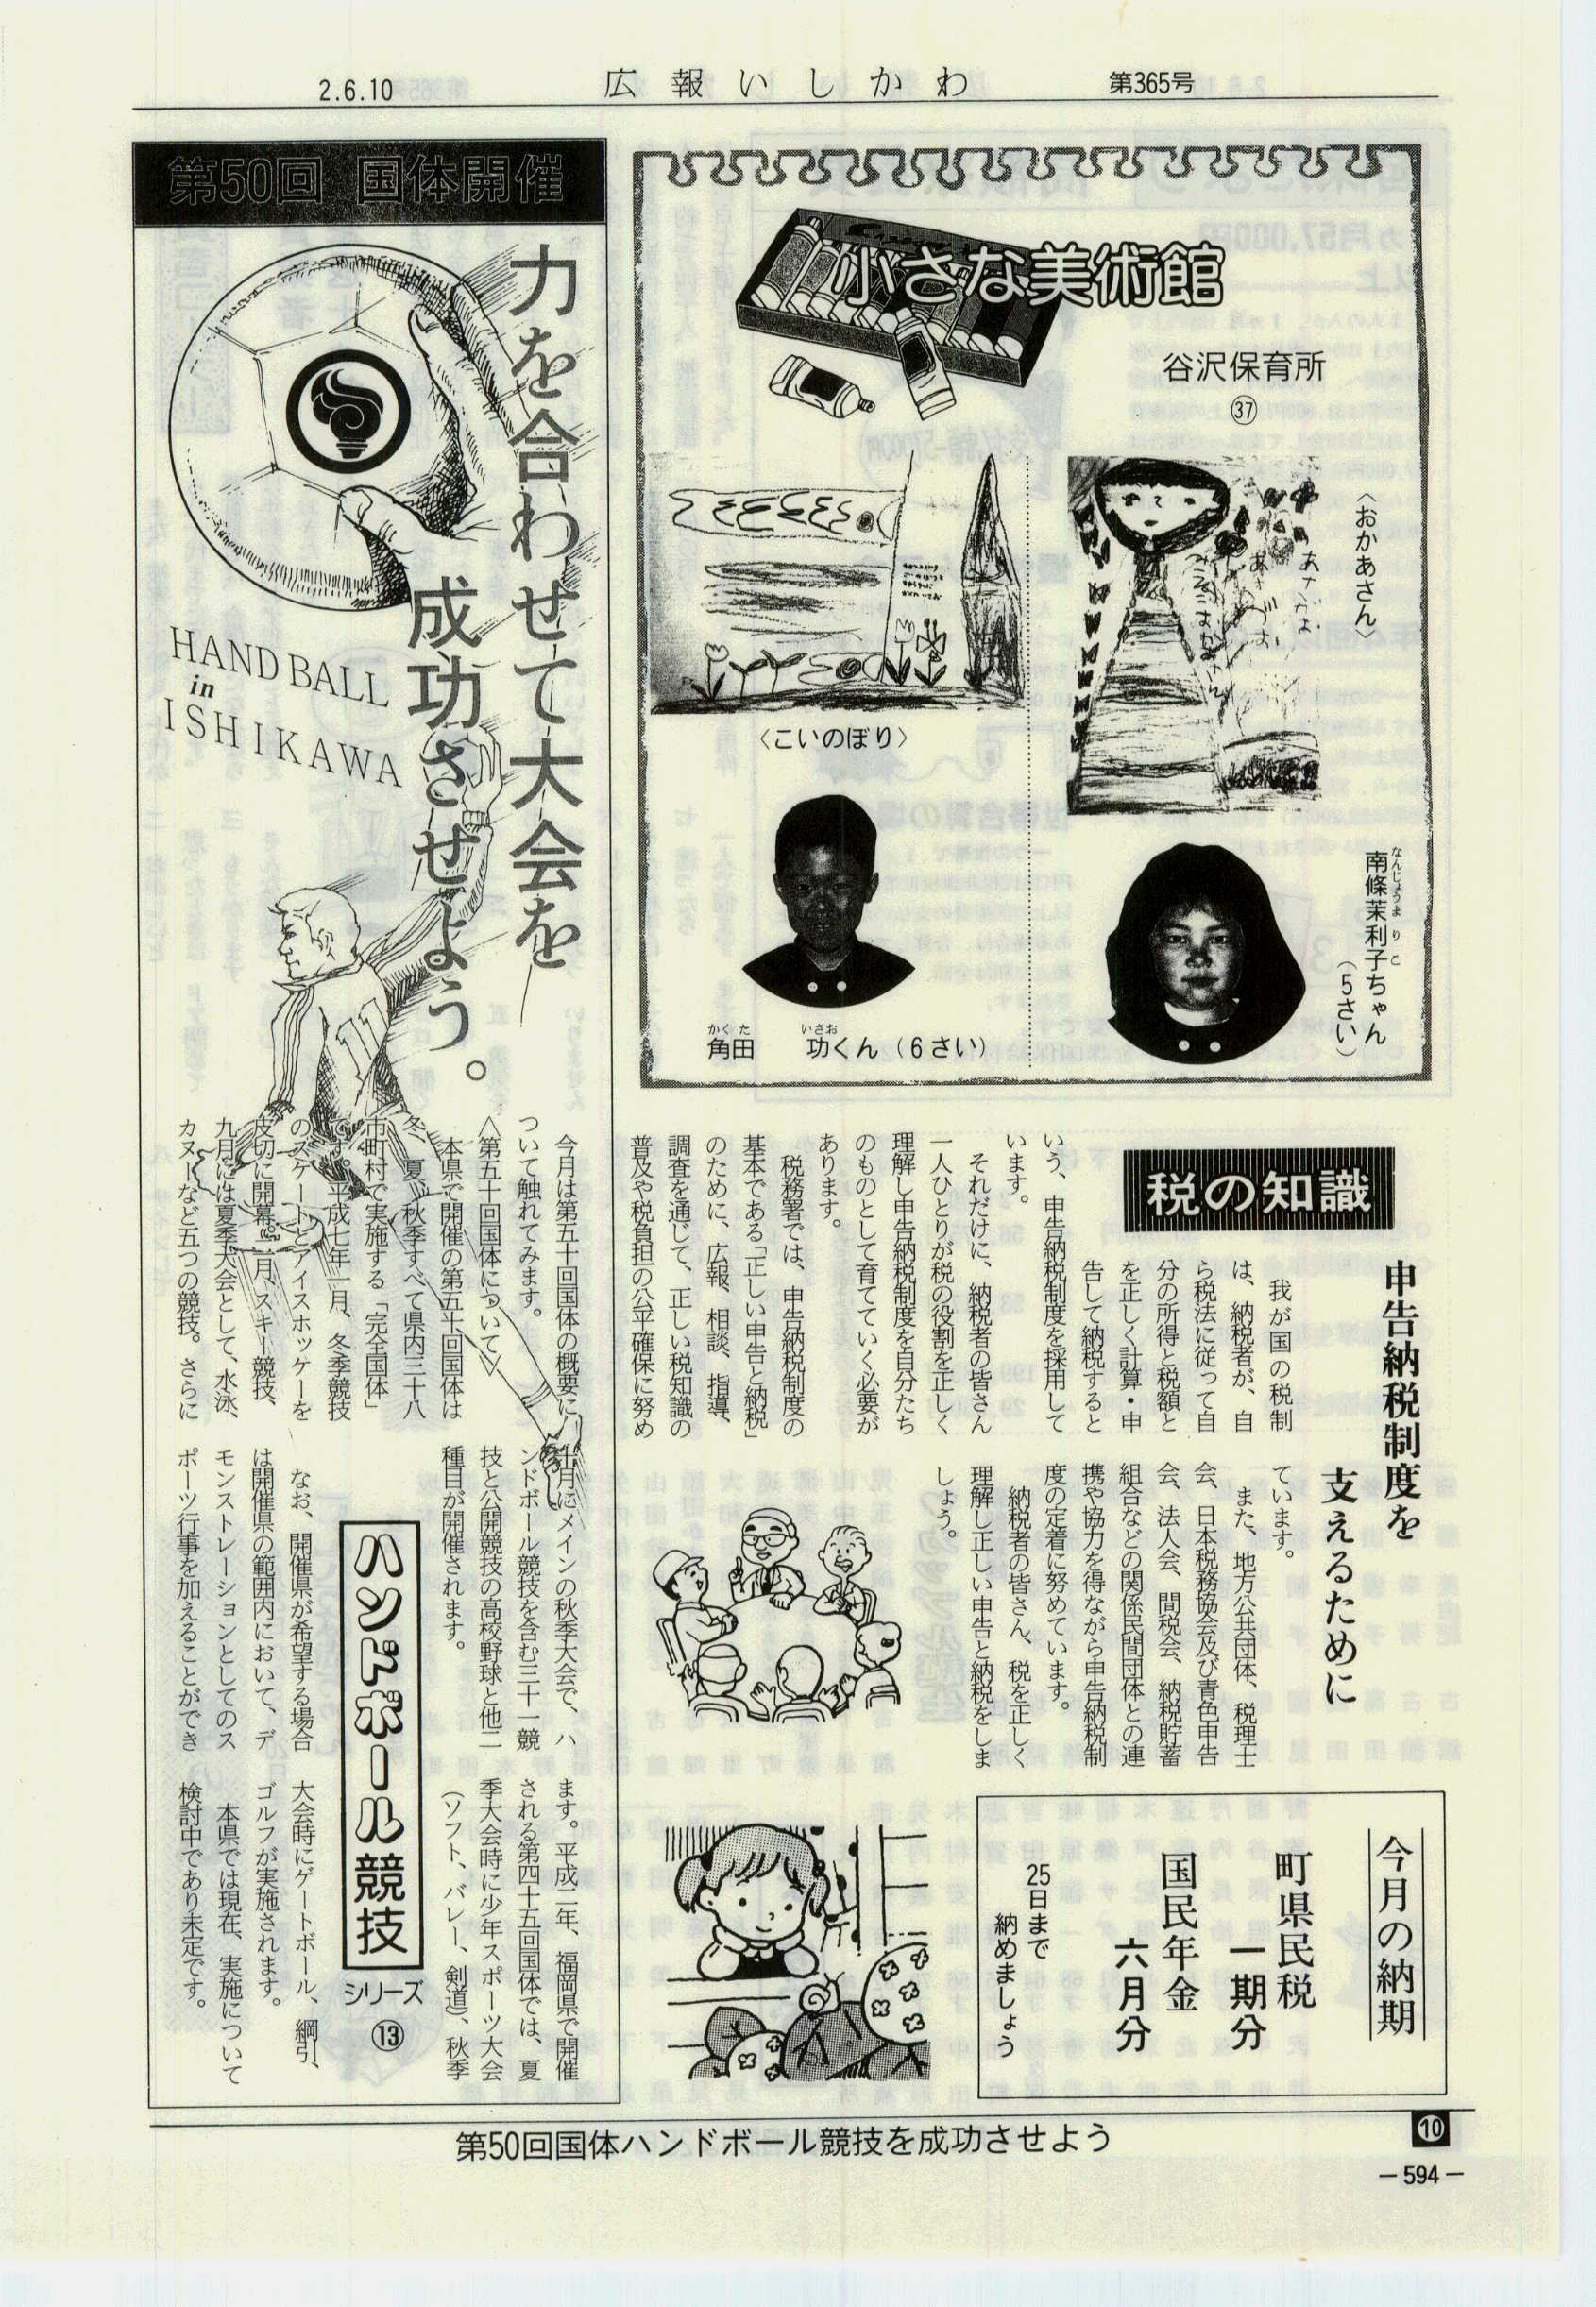 2.6.10
広報いしかわ
第365号
小さな美術館
谷沢保育所
㊲
〈おかあさん〉
〈こいのぼり〉
南條茉利子ちゃん
なんじょうまりこ
（5さい）
角田　功くん（6さい）
かくた　いさお
税の知識
申告納税制度を
支えるために
我が国の税制
は、納税者が、自
ら税法に従って自
分の所得と税額と
を正しく計算・申
告して納税すると
いう、申告納税制度を採用して
います。
それだけに、納税者の皆さん
一人ひとりが税の役割を正しく
理解し申告納税制度を自分たち
のものとして育てていく必要が
あります。
税務署では、申告納税制度の
基本である「正しい申告と納税」
のために、広報、相談、指導、
調査を通じて、正しい税知識の
普及や税負担の公平確保に努め
ています。
また、地方公共団体、税理士
会、日本税務協会及び青色申告
会、法人会、間税会、納税貯蓄
組合などの関係民間団体との連
携や協力を得ながら申告納税制
度の定着に努めています。
納税者の皆さん、税を正しく
理解し正しい申告と納税をしま
しょう。
今月の納期
町県民税
一期分
国民年金
六月分
25日まで
納めましょう
第50回 国体開催
力を合わせて大会を
成功させよう。
HAND BALL
in
ISHIKAWA
今月は第五十回国体の概要に
ついて触れてみます。
〈第五十回国体について〉
本県で開催の第五十回国体は
冬、夏、秋季すべて県内三十八
市町村で実施する「完全国体」
です。平成七年一月、冬季競技
のスケートとアイスホッケーを
皮切に開幕。二月、スキー競技、
九月には夏季大会として、水泳、
カヌーなど五つの競技。さらに
十月にメインの秋季大会で、ハ
ンドボール競技を含む三十一競
技と公開競技の高校野球と他二
種目が開催されます。
ハンドボール競技
シリーズ
⑬
なお、開催県が希望する場合
は開催県の範囲内において、デ
モンストレーションとしてのス
ポーツ行事を加えることができ
ます。平成二年、福岡県で開催
される第四十五回国体では、夏
季大会時に少年スポーツ大会
（ソフト、バレー、剣道）、秋季
大会時にゲートボール、綱引、
ゴルフが実施されます。
本県では現在、実施について
検討中であり未定です。
第50回国体ハンドボール競技を成功させよう
10
－594－